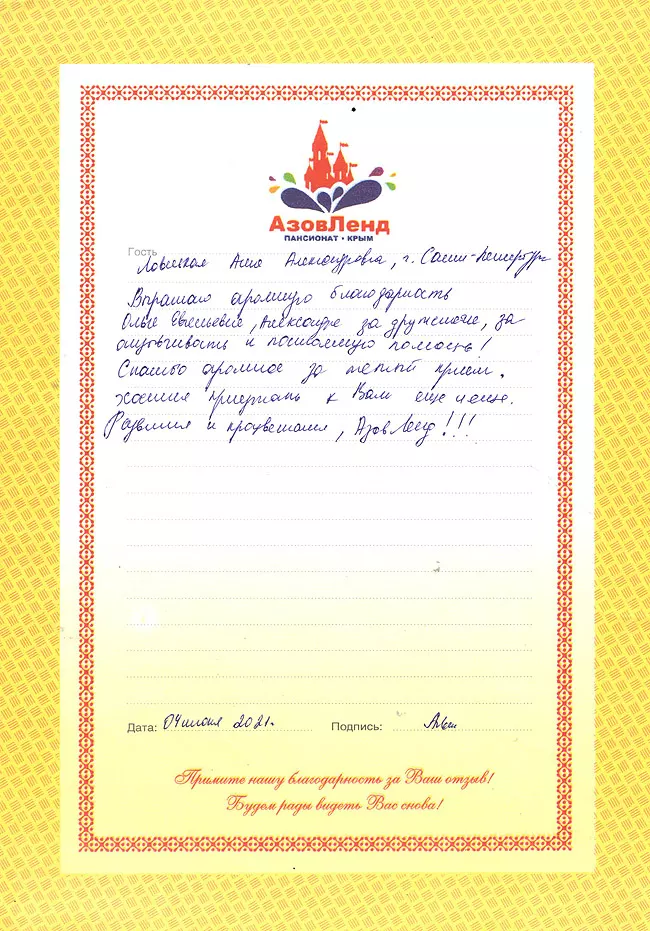 АзовЛенд
ПАНСИОНАТ • КРЫМ
Гость
Александровна, г. Санкт-Петербург
Выражаю огромную благодарность
Ольге Евгеньевне, Александре за дружелюбие, за
отзывчивость и посильную помощь!
Спасибо огромное за теплый прием.
Хочется приезжать к Вам еще чаще.
Развития и процветания, АзовЛенд!!!
Дата: 04 июня 2021г. Подпись:
Примите нашу благодарность за Ваш отзыв!
Будем рады видеть Вас снова!